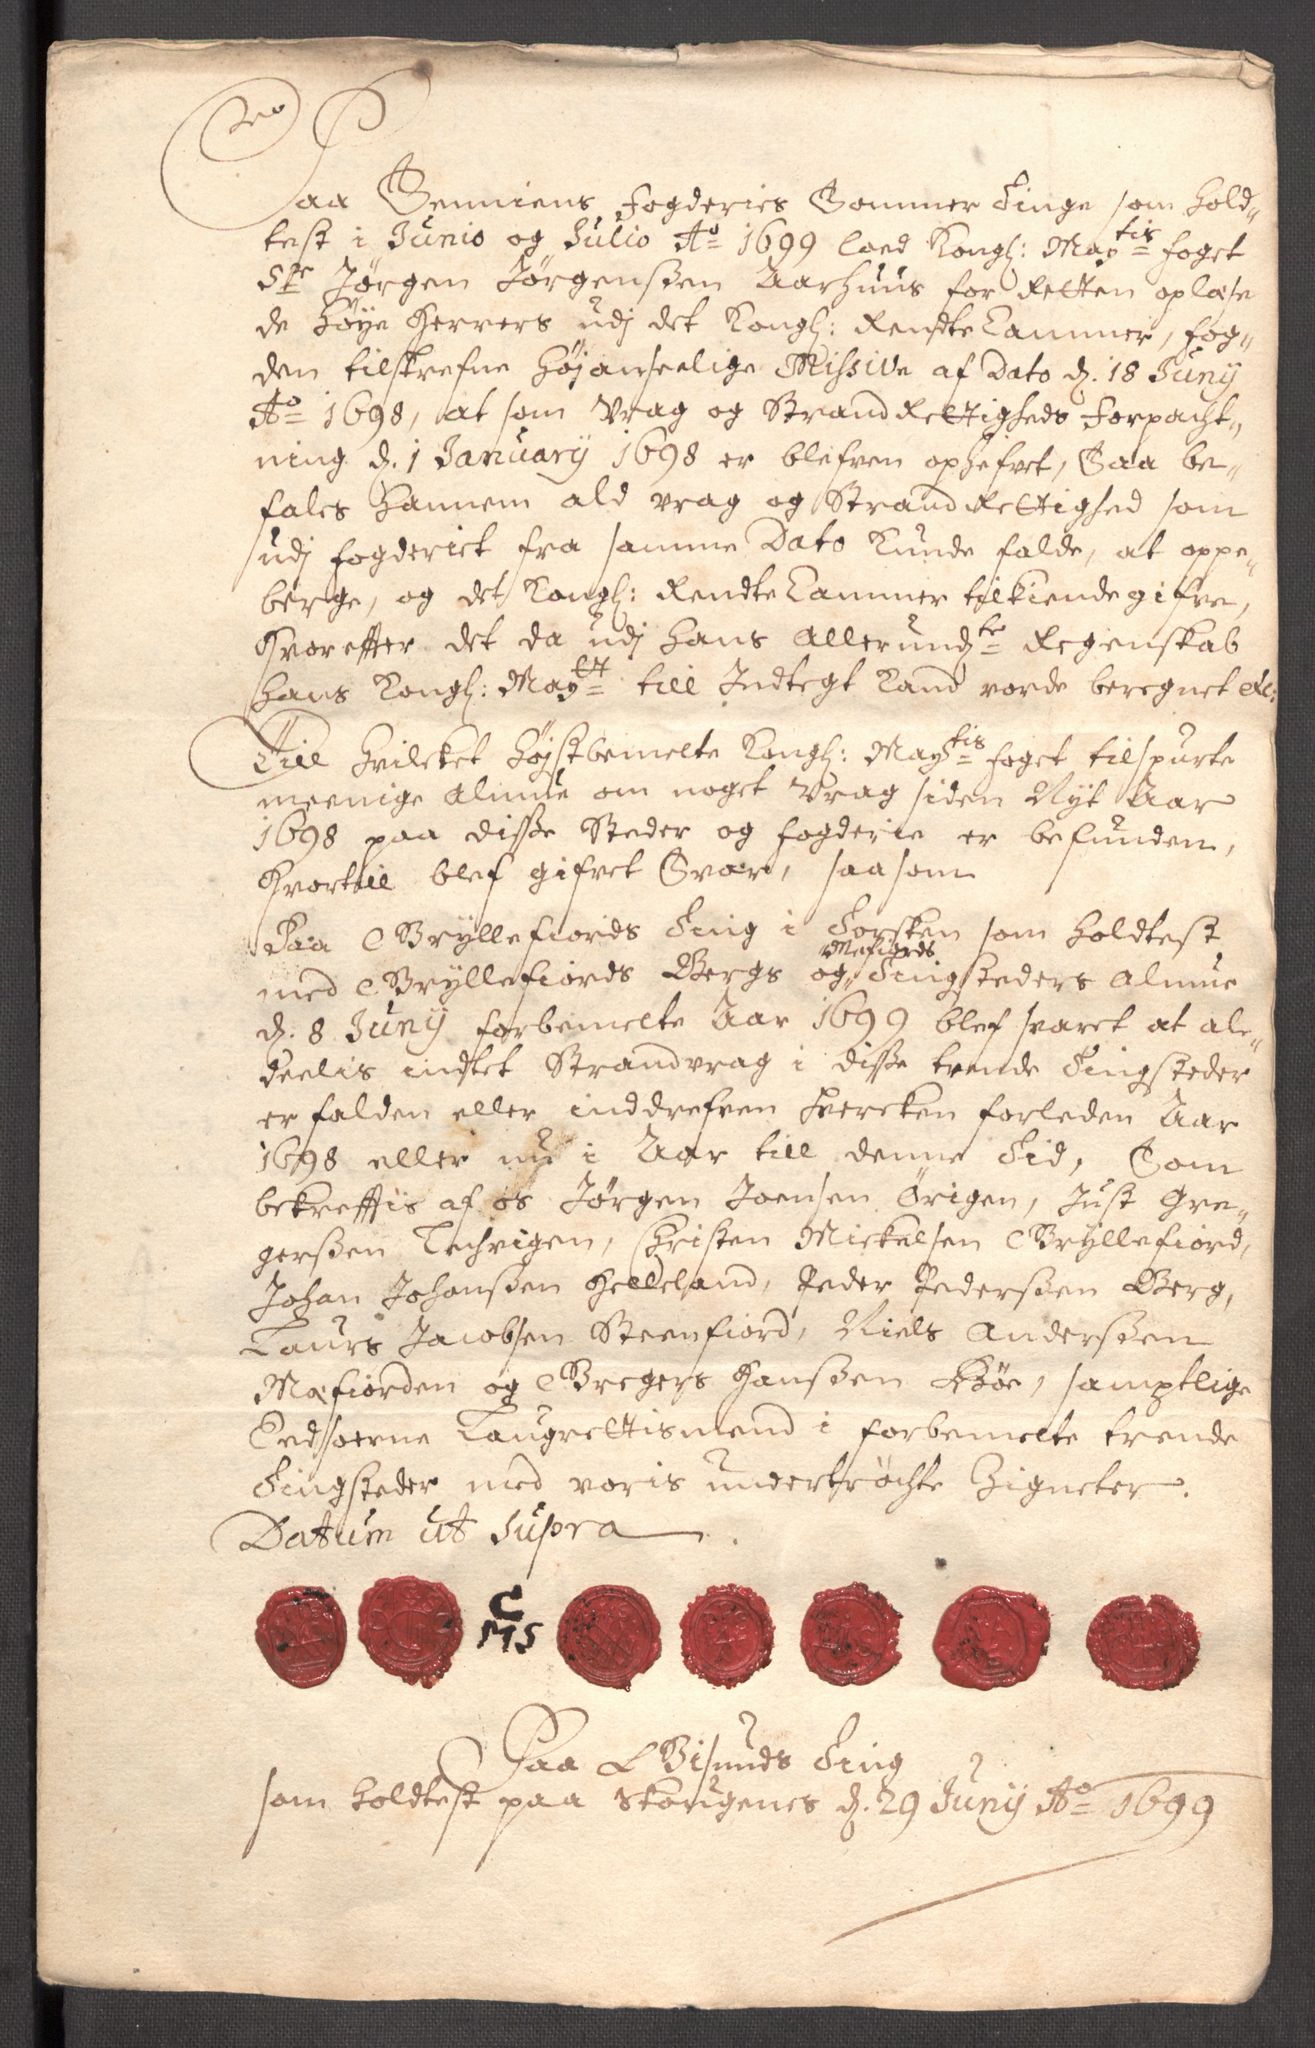 Paa Senniens Fogderies Sommer Tinge som hold-
test i Junio og Julio Ao 1699 loed Kongl: Maytis foget
Sr Jørgen Jørgenssen Aarhuus for Retten oplæse
de Høye Herrers udj det Kongl: RendteCammer, fog-
den tilskrefne Højanseelige Missive af Dato d. 18 Juny
Ao 1698, at som Vrag og StrandRettigheds Forpacht-
ning d. 1 January 1698 er blefven ophefvet, Saa be-
fales hannem ald vrag og StrandRettighed som
udj fogderiet fra samme Dato Kunde falde, at oppe-
berge, og det Kongl: RendteCammer tilkiende gifve,
Hvorefter det da udj hans Allerundte Regenskab
Hans Kongl: Maytt till Indtegt Kand vorde beregnet etc:
Till Hvilcket Højstbemelte Kongl: Maytis foget tilspurte
meenige Almue om noget Vrag siden Nyt Aar
1698 paa disse Steder og fogderie er befunden,
Hvortill blef gifvet Svar, saasom
Paa Gryllefiords Ting i Torsken som holdtest
med Gryllefiords Bergs og Mefiords Tingsteders Almue
d. 8 Juny forbemelte Aar 1699 blef svaret at al-
deelis indtet Strandvrag i disse trende Tingsteder
er falden eller inddrefven hvercken forleden Aar
1698 eller nu i Aar till denne Tid, Som
bekreftis af os Jørgen Joensen Örigen, Just Gre-
gerssen Lechvigen, Christen Mickelsen Gryllefiord,
Johan Johanssen Helleland, Peder Pederssen Berg,
Laurs Jacobsen Steenfiord, Niels Anderssen
Mefiorden og Gregers Hanssen Böe, samptlige
Eedsoerne Laugrettismend i forbemelte trende
Tingsteder med voris undertröchte Zigneter.
Datum ut supra
C
MS
Paa Gisunds Ting
som holdtest paa Skougenes d. 29 Juny Ao 1699